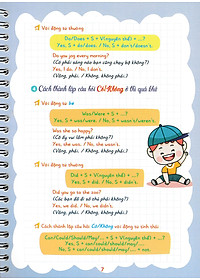 Với động từ thường
Do/Does + S + V(nguyên thể) + ...?
Yes, S + do/does. / No, S + don't/doesn't.
Do you jog every morning?
(Có phải sáng nào bạn cũng chạy bộ không?)
Yes, I do. / No, I don't.
(Vâng, phải. / Không, không phải.)
Cách thành lập câu hỏi Có/Không ở thì quá khứ
Với động từ be
Was/Were + S + ...?
Yes, S + was/were. / No, S + wasn't/weren't.
Was she so happy?
(Cô ấy vui lắm phải không?)
Yes, she was. / No, she wasn't.
(Vâng, phải. / Không, không phải.)
Với động từ thường
Did + S + V(nguyên thể) + ...?
Yes, S + did. / No, S + didn't.
Did you go to the zoo?
(Các bạn đã đi sở thú phải không?)
Yes, we did. / No, we didn't.
(Vâng, phải. / Không, không phải.)
Cách thành lập câu hỏi Có/Không với động từ tình thái
Can/Could/Should/May/... + S + V(nguyên thể) + ...?
Yes, S + can/could/should/may/...
No, S + can't/could not/should not/may not/...
7